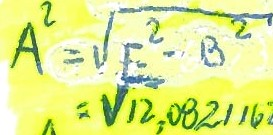 A² = √E² - B²
= √12,0821162